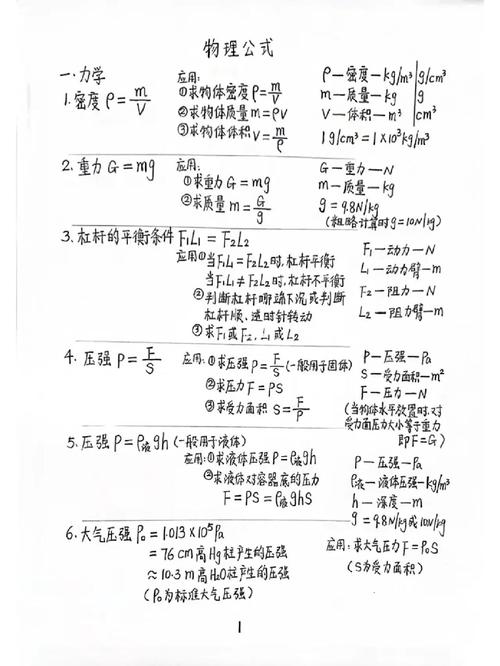 物理公式
一.力学
1.密度 ρ=m/V
应用:
①求物体密度 ρ=m/V
②求物体质量 m=ρV
③求物体体积 V=m/ρ
ρ—密度—kg/m³ | g/cm³
m—质量—kg | g
V—体积—m³ | cm³
1g/cm³=1×10³kg/m³
2.重力 G=mg
应用:
①求重力 G=mg
②求质量 m=G/g
G—重力—N
m—质量—kg
g=9.8N/kg
(粗略计算时g=10N/kg)
3.杠杆的平衡条件 F₁L₁=F₂L₂
应用①当F₁L₁=F₂L₂时,杠杆平衡
当F₁L₁≠F₂L₂时,杠杆不平衡
②判断杠杆哪端下沉或判断
杠杆顺、逆时针转动
③求F₁或F₂、L₁或L₂
F₁—动力—N
L₁—动力臂—m
F₂—阻力—N
L₂—阻力臂—m
4.压强 P=F/S
应用:①求压强P=F/S(一般用于固体)
②求压力F=PS
③求受力面积 S=F/P
P—压强—Pa
S—受力面积—m²
F—压力—N
(当物体水平放置时.对
受力面压力大小等于重力
即F=G)
5.压强 P=ρ液gh (一般用于液体)
应用:①求液体压强 P=ρ液gh
②求液体对容器底的压力
F=PS=ρ液ghS
P—压强—Pa
ρ液—液体压强—kg/m³
h—深度—m
g=9.8N/kg或10N/kg
6.大气压强 P₀=1.013×10⁵Pa
=76cm高Hg柱产生的压强
≈10.3m高H₂O柱产生的压强
(P₀为标准大气压强)
应用:求大气压力F=P₀S
(S为受力面积)
1